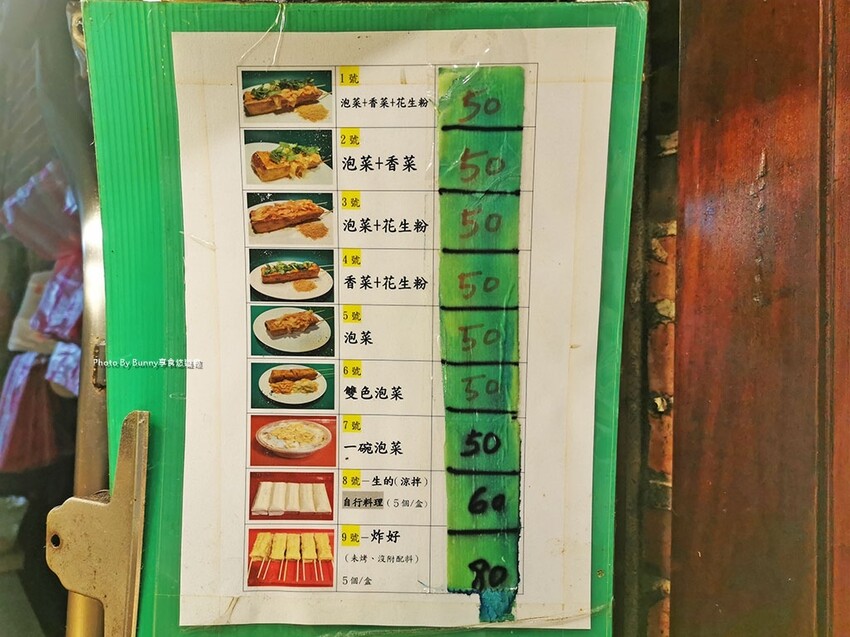 1號
泡菜+香菜+花生粉
50
2號
泡菜+香菜
50
3號
泡菜+花生粉
50
4號
香菜+花生粉
50
5號
泡菜
50
6號
雙色泡菜
50
7號
一碗泡菜
50
8號－生的(涼拌)
自行料理(5個/盒)
60
9號－炸好
(未烤、沒附配料)
5個/盒
80